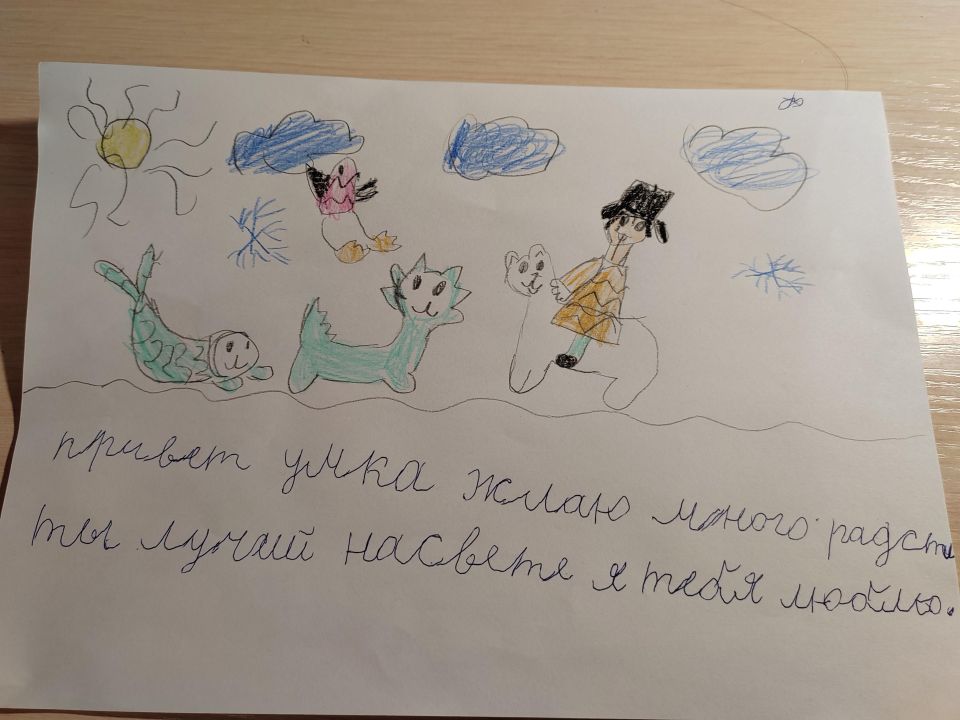 привет умка жлаю много радсти
ты лучий насвете я тебя люблю.